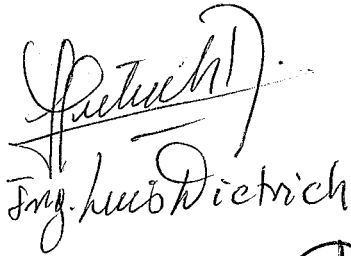 Ing. Luis Dietrich